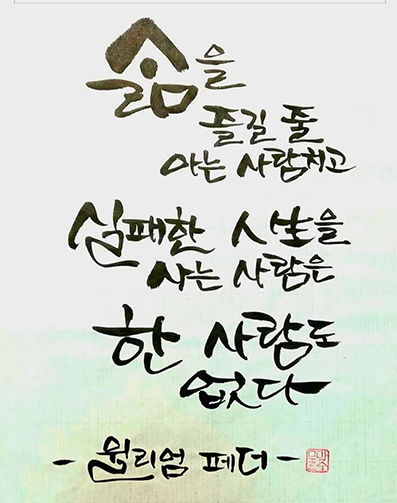 삶을
즐길 줄
아는 사람치고
실패한 人生을
사는 사람은
한 사람도
없다
- 윌리엄 페더 -